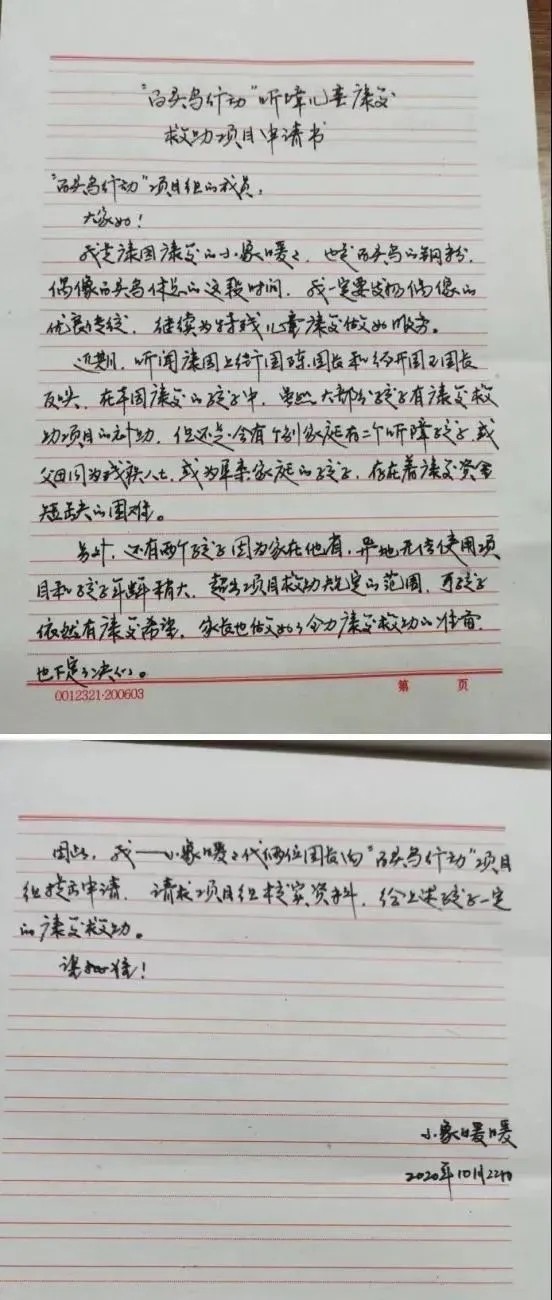 “百灵鸟行动”听障儿童康复
救助项目申请书
“百灵鸟行动”项目组的成员，
大家好！
我是康园康复的小象暖暖，也是百灵鸟的钢粉，
偶像百灵鸟休息的这段时间，我一定要发扬偶像的
优良传统，继续为特残儿童康复做好服务。
近期，听闻康园上饶园陈园长和经开园王园长
反映，在本园康复的孩子中，虽然大部分孩子有康复救
助项目的补助，但还是会有个别家庭有二个听障孩子，或
父母同为残疾人士，或为单亲家庭的孩子，存在着康复资金
短缺的困难。
另外，还有两个孩子因为家在他省，异地无法使用项
目和孩子年龄稍大，超出项目救助规定的范围，可孩子
依然有康复希望，家长也做好了全力康复救助的准备，
也下定了决心。
0012321·200603 第 页
因此，我——小象暖暖代俩位园长向“百灵鸟行动”项目
组提出申请，请求项目组核实资料，给上述孩子一定
的康复救助。
请批准！
小象暖暖
2020年10月22日